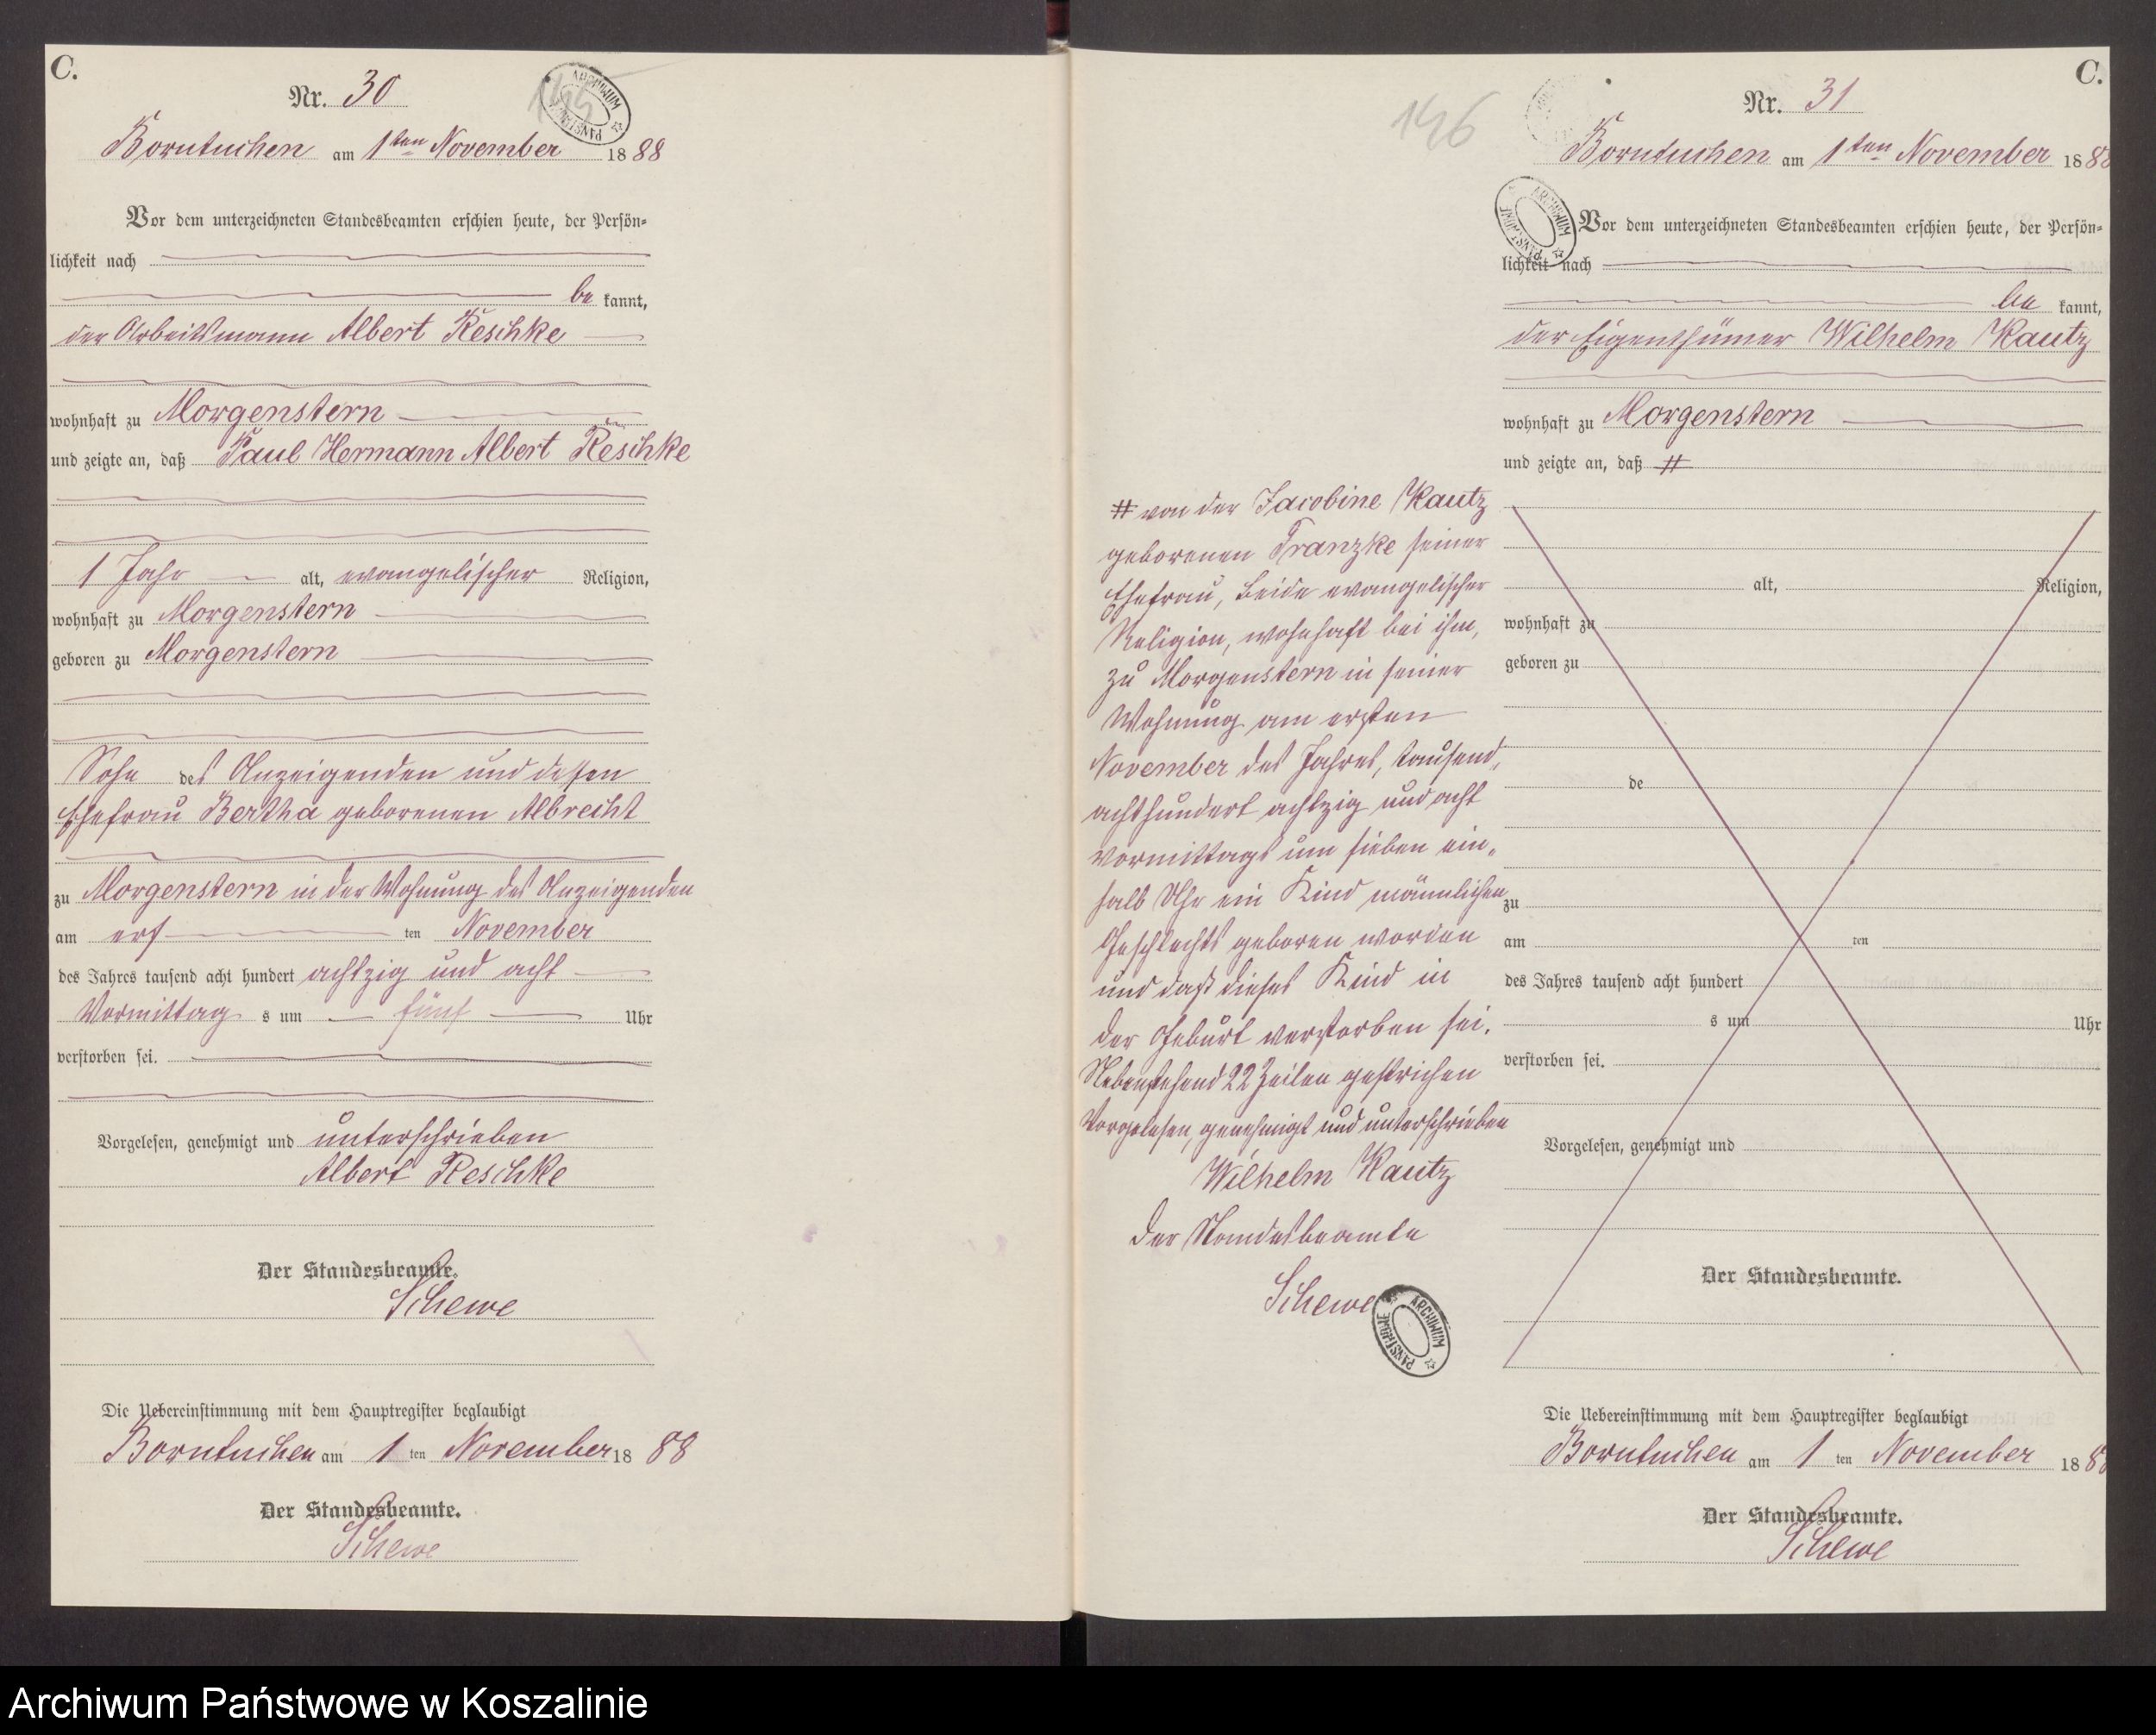 C.
Nr. 30
145
ARCHIWUM PAŃSTWOWE
Borntuchen am 1ten November 1888
Vor dem unterzeichneten Standesbeamten erschien heute, der Persön-
lichkeit nach
be kannt,
der Arbeitsmann Albert Reschke
wohnhaft zu Morgenstern
und zeigte an, daß Paul Hermann Albert Reschke
1 Jahr alt, evangelischer Religion,
wohnhaft zu Morgenstern
geboren zu Morgenstern
Sohn des Anzeigenden und dessen
Ehefrau Bertha geborenen Albrecht
zu Morgenstern in der Wohnung des Anzeigenden
am ersten November
des Jahres tausend acht hundert achtzig und acht
Vormittags um fünf Uhr
verstorben sei.
Vorgelesen, genehmigt und unterschrieben
Albert Reschke
Der Standesbeamte.
Schewe
Die Uebereinstimmung mit dem Hauptregister beglaubigt
Borntuchen am 1ten November 1888
Der Standesbeamte.
Schewe
C.
146
Nr. 31
Borntuchen am 1ten November 188
ARCHIWUM PAŃSTWOWE
Vor dem unterzeichneten Standesbeamten erschien heute, der Persön-
lichkeit nach
be kannt,
der Eigenthümer Wilhelm Kautz
wohnhaft zu Morgenstern
und zeigte an, daß #
# von der Jacobine Kautz
geborenen Franzke seiner
Ehefrau, beide evangelischer
Religion, wohnhaft bei ihm,
zu Morgenstern in seiner
Wohnung am ersten
November des Jahres, tausend,
achthundert achtzig und acht
vormittags um sieben ein,
halb Uhr ein Kind männlichen
Geschlechts geboren worden
und daß dieses Kind in
der Geburt verstorben sei.
Nebenstehend 22 Zeilen gestrichen
Vorgelesen, genehmigt und unterschrieben
Wilhelm Kautz
Der Standesbeamte
Schewe
ARCHIWUM PAŃSTWOWE
alt, Religion,
wohnhaft zu
geboren zu
de
zu
am ten
des Jahres tausend acht hundert
s um Uhr
verstorben sei.
Vorgelesen, genehmigt und
Der Standesbeamte.
Die Uebereinstimmung mit dem Hauptregister beglaubigt
Borntuchen am 1 ten November 188
Der Standesbeamte.
Schewe
Archiwum Państwowe w Koszalinie